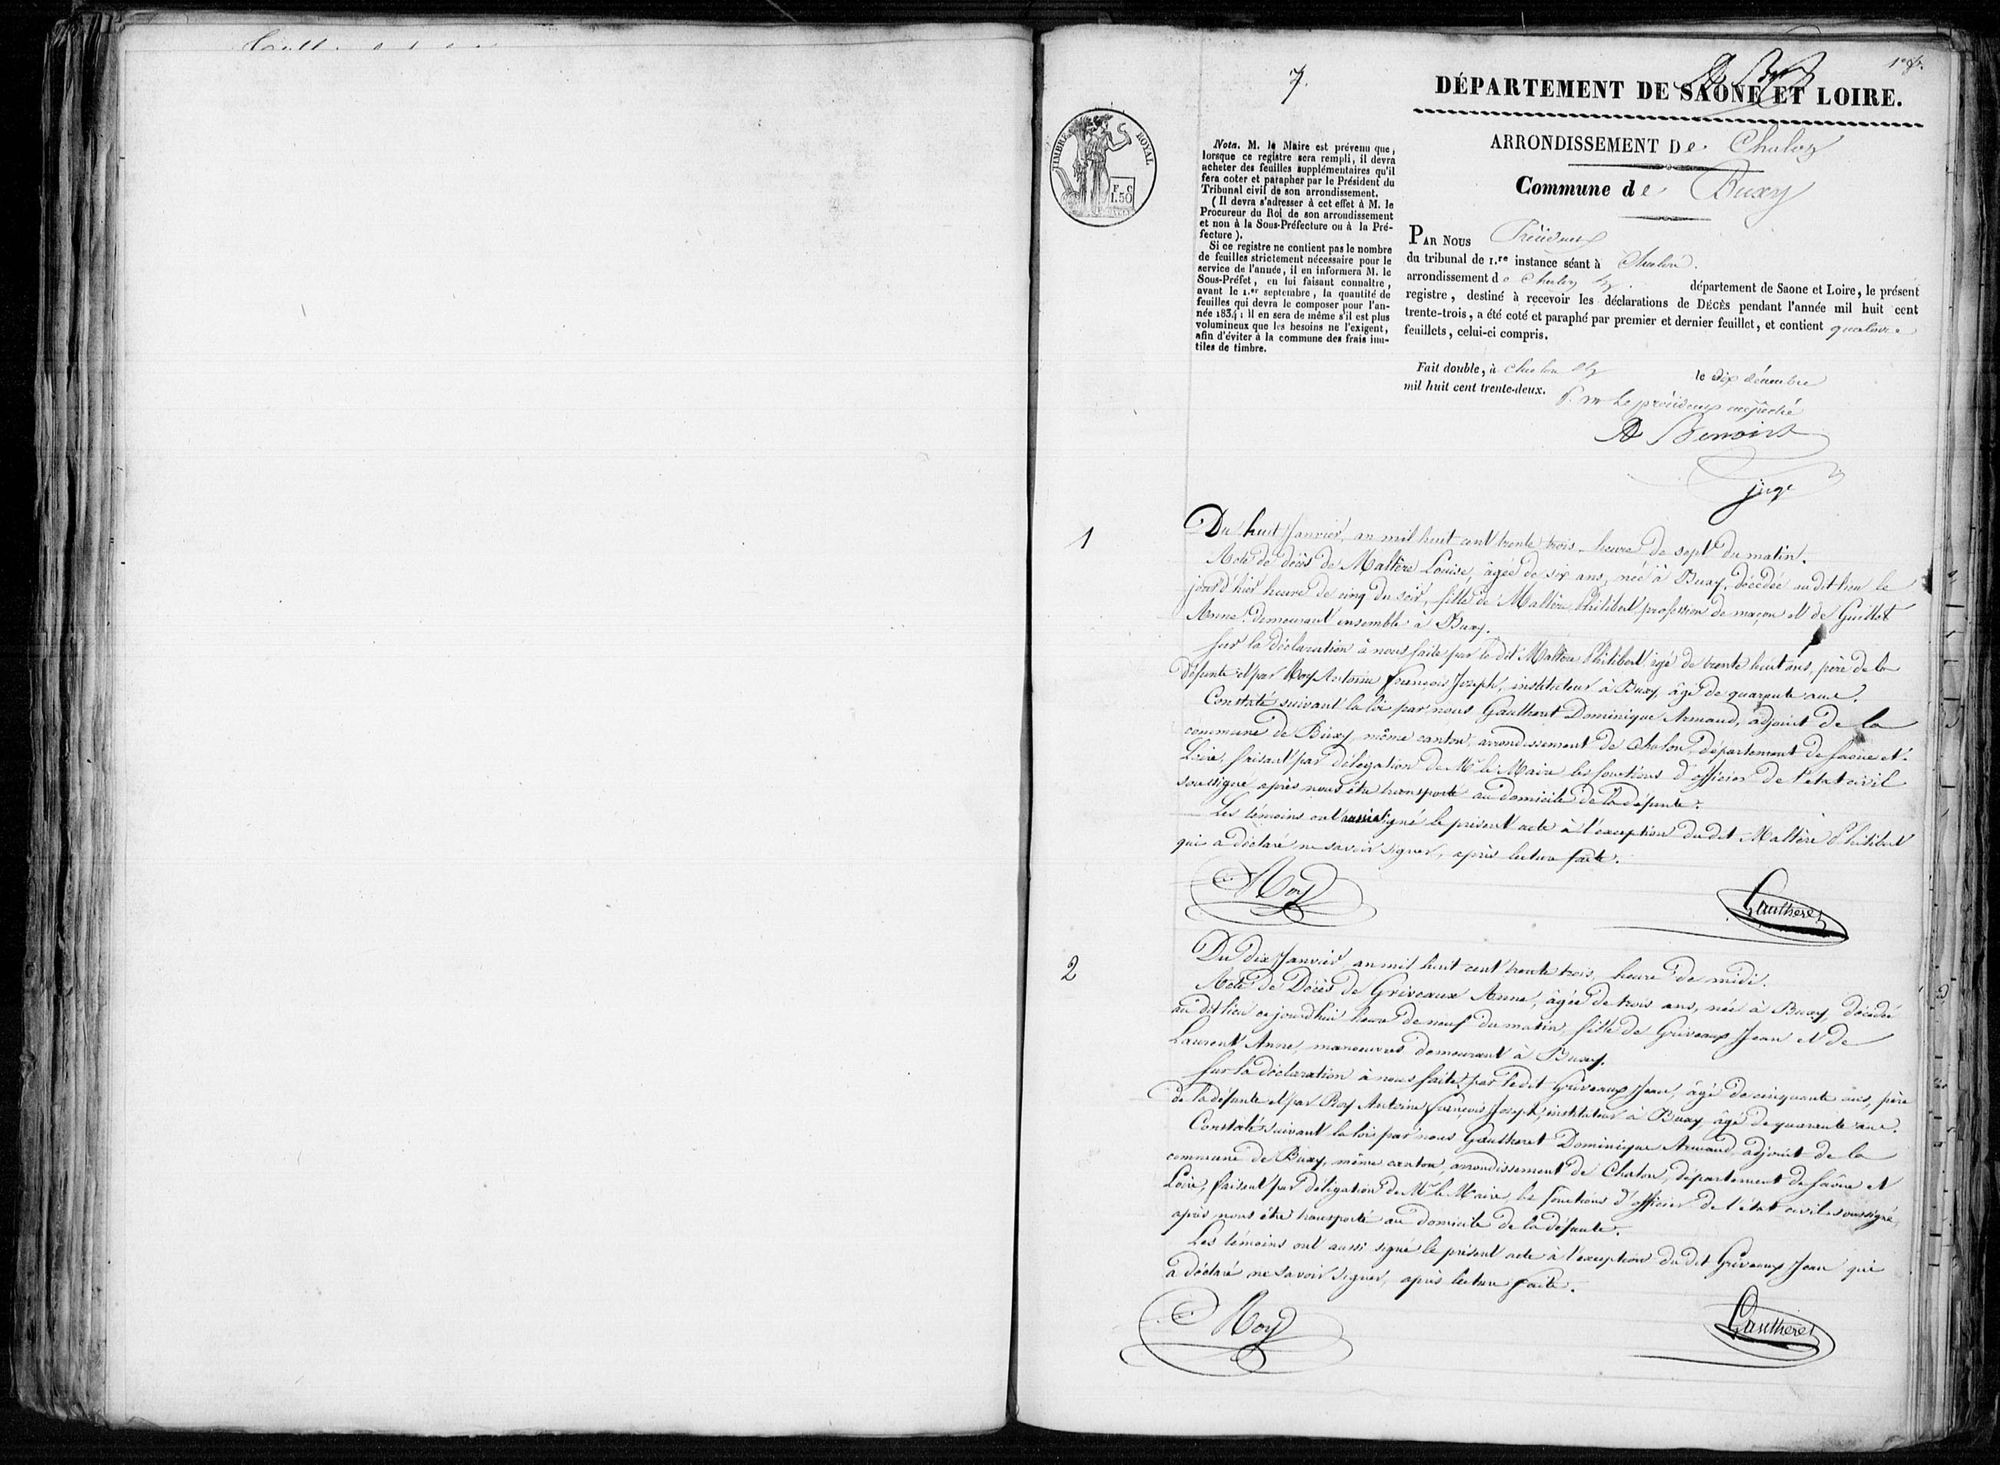 7.
1er f.
DÉPARTEMENT DE SAONE ET LOIRE.
TIMBRE ROYAL
F. C
1.50
ARRONDISSEMENT De Chalon
Commune de Buxy
Nota. M. le Maire est prévenu que,
lorsque ce registre sera rempli, il devra
acheter des feuilles supplémentaires qu'il
fera coter et parapher par le Président du
Tribunal civil de son arrondissement.
(Il devra s'adresser à cet effet à M. le
Procureur du Roi de son arrondissement
et non à la Sous-Préfecture ou à la Pré-
fecture).
Si ce registre ne contient pas le nombre
de feuilles strictement nécessaire pour le
service de l'année, il en informera M. le
Sous-Préfet, en lui faisant connaître,
avant le 1.er septembre, la quantité de
feuilles qui devra le composer pour l'an-
née 1834: Il en sera de même s'il est plus
volumineux que les besoins ne l'exigent,
afin d'éviter à la commune des frais inu-
tiles de timbre.
PAR NOUS Président
du tribunal de 1.re instance séant à Chalon.
arrondissement de Chalon département de Saone et Loire, le présent
registre, destiné à recevoir les déclarations de DÉCÈS pendant l'année mil huit cent
trente-trois, a été coté et paraphé par premier et dernier feuillet, et contient quatorze
feuillets, celui-ci compris.
Fait double, à Chalon le dix décembre
mil huit cent trente-deux.
p. m le président empêché
A Benoist
juge
1
Du huit Janvier, an mil huit cent trente trois heure de sept du matin.
Acte de décès de Maltère Louise, âgée de six ans, née à Buxy, décédée au dit lieu le
jour d'hier heure de cinq du soir, fille de Maltère Philibert profession de maçon et de Guillot
Anne demeurant ensemble à Buxy.
Sur la déclaration à nous faite par le dit Maltère Philibert âgé de trente huit ans, père de la
défunte et par Roy Antoine François Joseph, instituteur à Buxy âgé de quarante ans.
Constaté suivant la loi par nous Gautheret Dominique Armand, adjoint de la
commune de Buxy, même canton, arrondissement de Chalon, département de Saone et
Loire, faisant par délégation de Mr le Maire les fonctions d'officier de l'état civil
soussigné après nous être transporté au domicile de la défunte.
Les témoins ont aussi signé le présent acte à l'exception du dit Maltère Philibert
qui a déclaré ne savoir signer, après lecture faite.
Roy Gautheret
2
Du dix Janvier an mil huit cent trente trois, heure de midi.
Acte de Décès de Griveaux Anne, âgée de trois ans, née à Buxy, décédée
au dit lieu ce jourd'hui heure de neuf du matin, fille de Griveaux Jean et de
Laurent Anne, manoeuvres demeurant à Buxy.
Sur la déclaration à nous faite par le dit Griveaux Jean, âgé de cinquante ans, père
de la défunte et par Roy Antoine François Joseph, instituteur à Buxy âgé de quarante ans.
Constaté suivant la loi par nous Gautheret Dominique Armand, adjoint de la
commune de Buxy, même canton, arrondissement de Chalon, département de Saone et
Loire, faisant par délégation de Mr le Maire les fonctions d'officier de l'état civil soussigné,
après nous être transporté au domicile de la défunte.
Les témoins ont aussi signé le présent acte à l'exception du dit Griveaux Jean qui
a déclaré ne savoir signer, après lecture faite.
Roy Gautheret